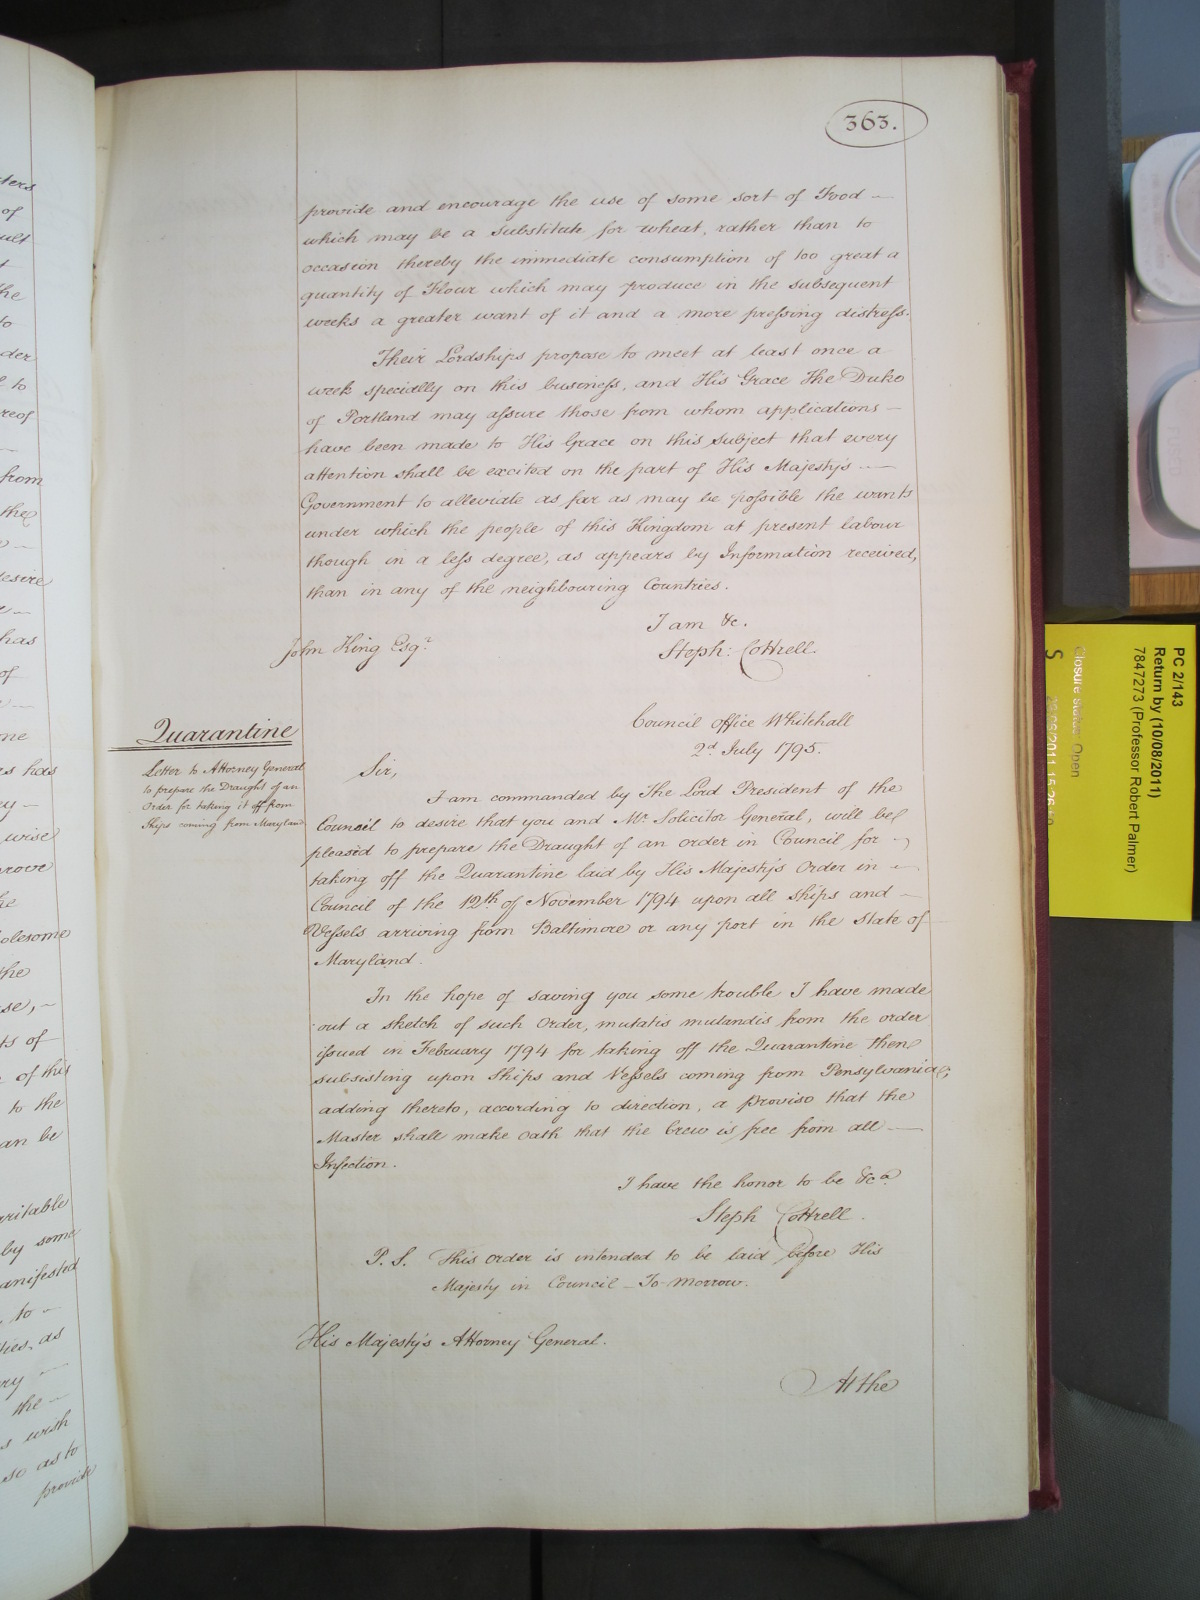 363.
provide and encourage the use of some sort of Food —
which may be a substitute for wheat, rather than to
occasion thereby the immediate consumption of too great a
quantity of Flour which may produce in the subsequent
weeks a greater want of it and a more pressing distress.
Their Lordships propose to meet at least once a
week specially on this business, and His Grace The Duke
of Portland may assure those from whom applications —
have been made to His Grace on this subject that every
attention shall be excited on the part of His Majesty's —
Government to alleviate as far as may be possible the wants
under which the people of this Kingdom at present labour
though in a less degree, as appears by Information received,
than in any of the neighbouring Countries.
I am &c.
Steph: Cottrell.
John King Esqr.
Council Office Whitehall
2d July 1795.
Quarantine
Letter to Attorney General
to prepare the Draught of an
Order for taking it off from
Ships coming from Maryland
Sir,
I am commanded by The Lord President of the
Council to desire that you and Mr. Solicitor General, will be
pleased to prepare the Draught of an order in Council for
taking off the Quarantine laid by His Majesty's Order in —
Council of the 12th of November 1794 upon all ships and —
Vessels arriving from Baltimore or any port in the State of
Maryland.
In the hope of saving you some trouble I have made
out a sketch of such Order, mutatis mutandis from the order
issued in February 1794 for taking off the Quarantine then
subsisting upon Ships and Vessels coming from Pensylvania;
adding thereto, according to direction, a Proviso that the
Master shall make Oath that the Crew is free from all —
Infection.
I have the honor to be &ca
Steph Cottrell.
P. S. This Order is intended to be laid before His
Majesty in Council — To-Morrow.
His Majesty's Attorney General.
At the
PC 2/143
Return by (10/08/2011)
7847273 (Professor Robert Palmer)
Closure status: Open
S
ters
of
the
to
der
to
from
the
desire
has
of
me
es has
wise
prove
olesome
the
se, —
ts of
of this
to the
an be
aritable
by some
anifested
to —
ties, as
ry —
the —
wish
se as to
provide